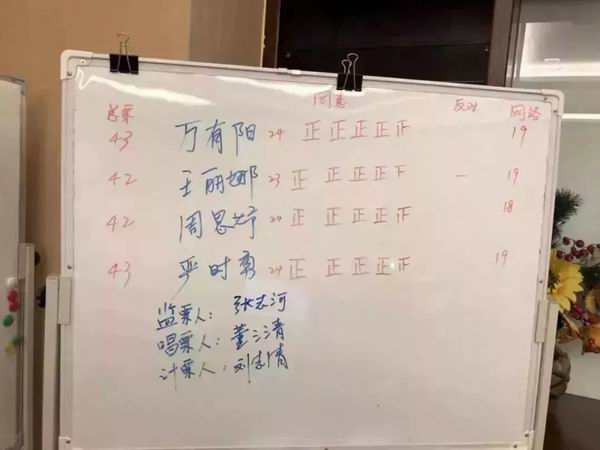 总票 同意 反对 网络
43 万有阳 24 正 正 正 正 正 19
42 王丽娜 23 正 正 正 正 下 一 19
42 周思妤 24 正 正 正 正 正 18
43 严时勇 24 正 正 正 正 正 19
监票人：张志河
唱票人：董江清
计票人：刘志倩